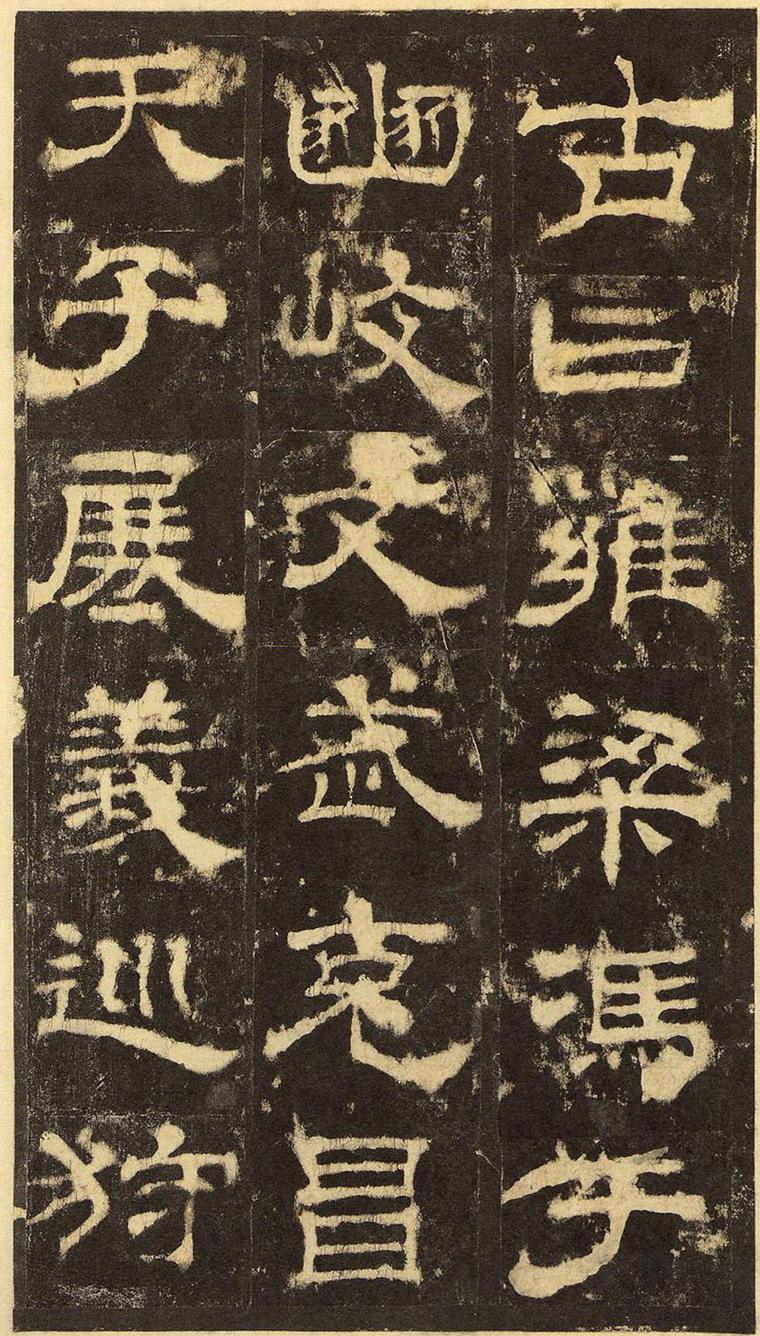 古曰雍梁馮于
豳岐文武克昌
天子展義巡狩